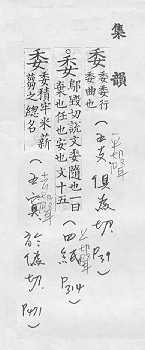 集韻
委 委委行
委曲也 (五支 為切. P39)
委 鄔毀切說文委隨也一曰
棄也任也安也文十五 (四紙 P314)
委 委積牢米薪
芻之總名 (五寘 於偽切. P471)